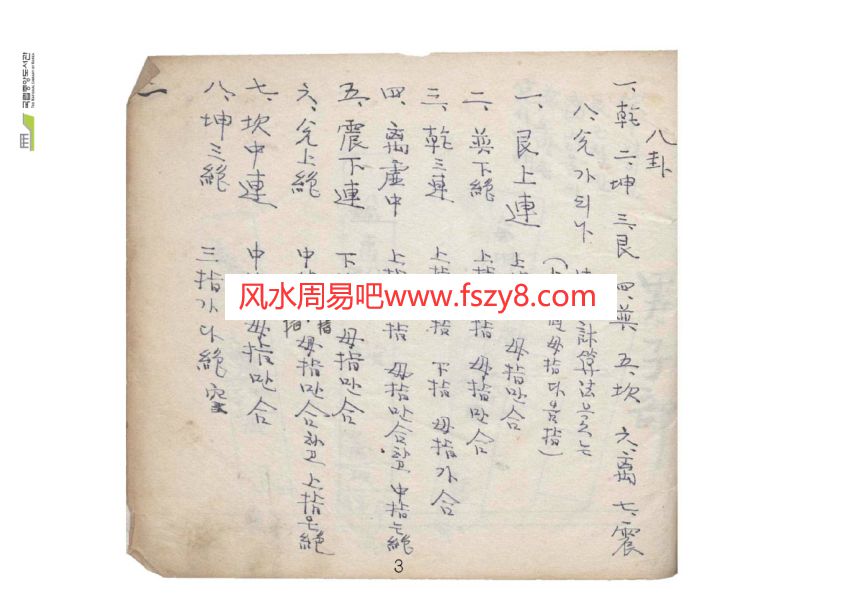 八卦
一、乾 二、坤 三、艮 四、巽 五、坎 六、离 七、震
八、兌가되나 計算法
母指다음指)
一、艮上連 上 母指만合
二、巽下絶 上指 指 母指만合
三、乾三連 上指 指 下指 母指가合
四、离虛中 上指 指 母指만合하고 中指는絶
五、震下連 下 指 母指만合
六、兌上絶 中 指 母指만合하고 上指은絶
七、坎中連 中 母指만合
八、坤三絶 三指가다絶
二
3
风水周易吧www.fszy8.com
국립중앙도서관